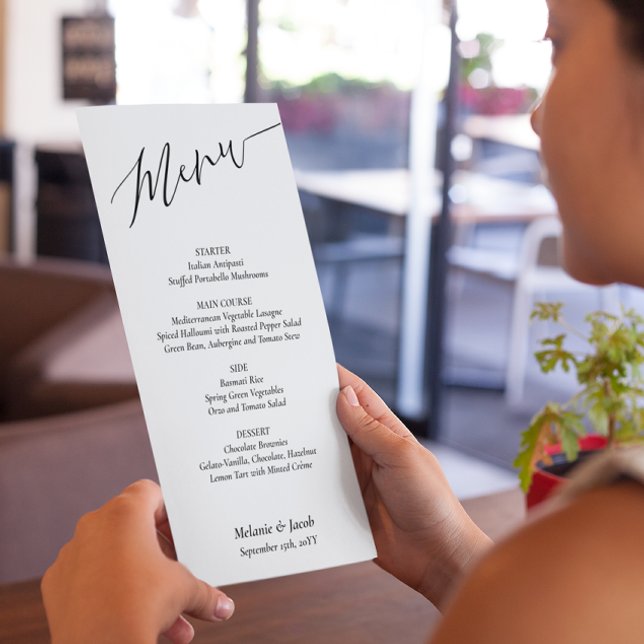 Menu
STARTER
Italian Antipasti
Stuffed Portabello Mushrooms
MAIN COURSE
Mediterranean Vegetable Lasagne
Spiced Halloumi with Roasted Pepper Salad
Green Bean, Aubergine and Tomato Stew
SIDE
Basmati Rice
Spring Green Vegetables
Orzo and Tomato Salad
DESSERT
Chocolate Brownies
Gelato-Vanilla, Chocolate, Hazelnut
Lemon Tart with Minted Crème
Melanie & Jacob
September 15th, 20YY